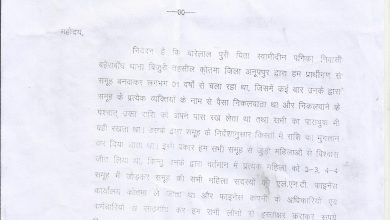 —00—
महोदय,
निवेदन है कि बारेलाल पुरी पिता स्वामीदीन पनिका निवासी
बहेराबांध थाना बिजुरी तहसील कोतमा जिला अनूपपुर द्वारा हम प्रार्थीगण से
समूह बनवाकर लगभग 01 वर्षो से चला रहा था, जिसमें कई बार उनके द्वारा
समूह के प्रत्येक व्यक्तियों के नाम से पैसा निकलवाता था और निकलवाने के
पश्चात् उक्त राशि को अपने पास रख लेता था तथा सभी का पासबुक भी
वही रखता था। उसके द्वारा समूह के निर्देशानुसार किस्तों में राशि का भुगतान
कर दिया जाता था। इसी प्रकार हम सभी समूह से जुड़ी महिलाओं से विश्वास
जीत लिया था, किन्तु उसके द्वारा वर्तमान में प्रत्येक महिला को 3-3, 4-4
समूह में जोड़कर समूह की सभी महिला सदस्यों को एल.एन.टी. फाइनेंस
कार्यालय कोतमा ले जाता था और फाइनेंस कंपनी के अधिकारियों एवं
कर्मचारियों से सांठगांठ कर हम सभी लोगों से हस्ताक्षर कराकर रूपये